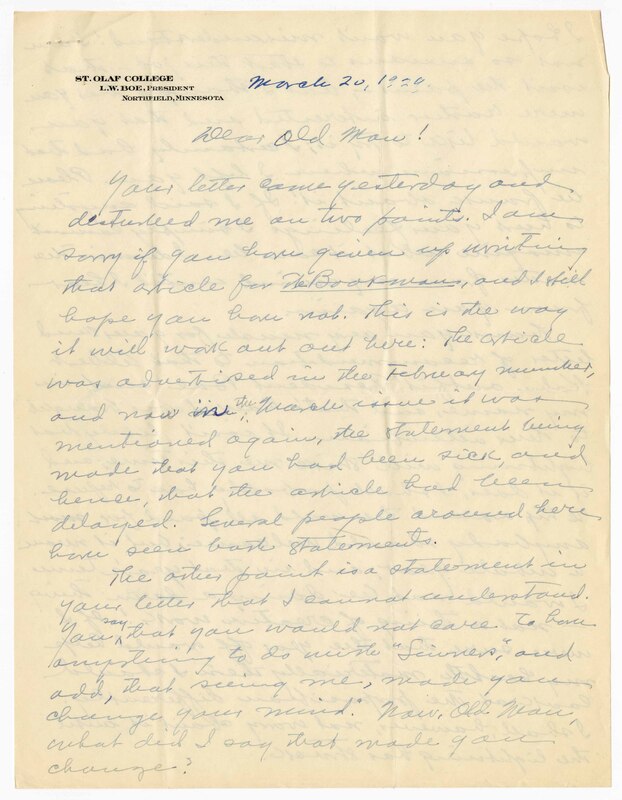 ST. OLAF COLLEGE
L. W. BOE, PRESIDENT
NORTHFIELD, MINNESOTA
March 20, 1929.
Dear Old Man!
Your letter came yesterday and
disturbed me on two points. I am
sorry if you have given up writing
that article for The Bookman, and I still
hope you have not. This is the way
it will work out out here: The article
was advertised in the February number,
and now in the March issue it was
mentioned again, the statement being
made that you had been sick, and
hence, that the article had been
delayed. Several people around here
have seen both statements.
The other point is a statement in
your letter that I cannot understand.
You say that you would not care to have
anything to do with "Sinners", and
add, that seeing me, made you
change your mind. Now, Old Man,
what did I say that made you
change?